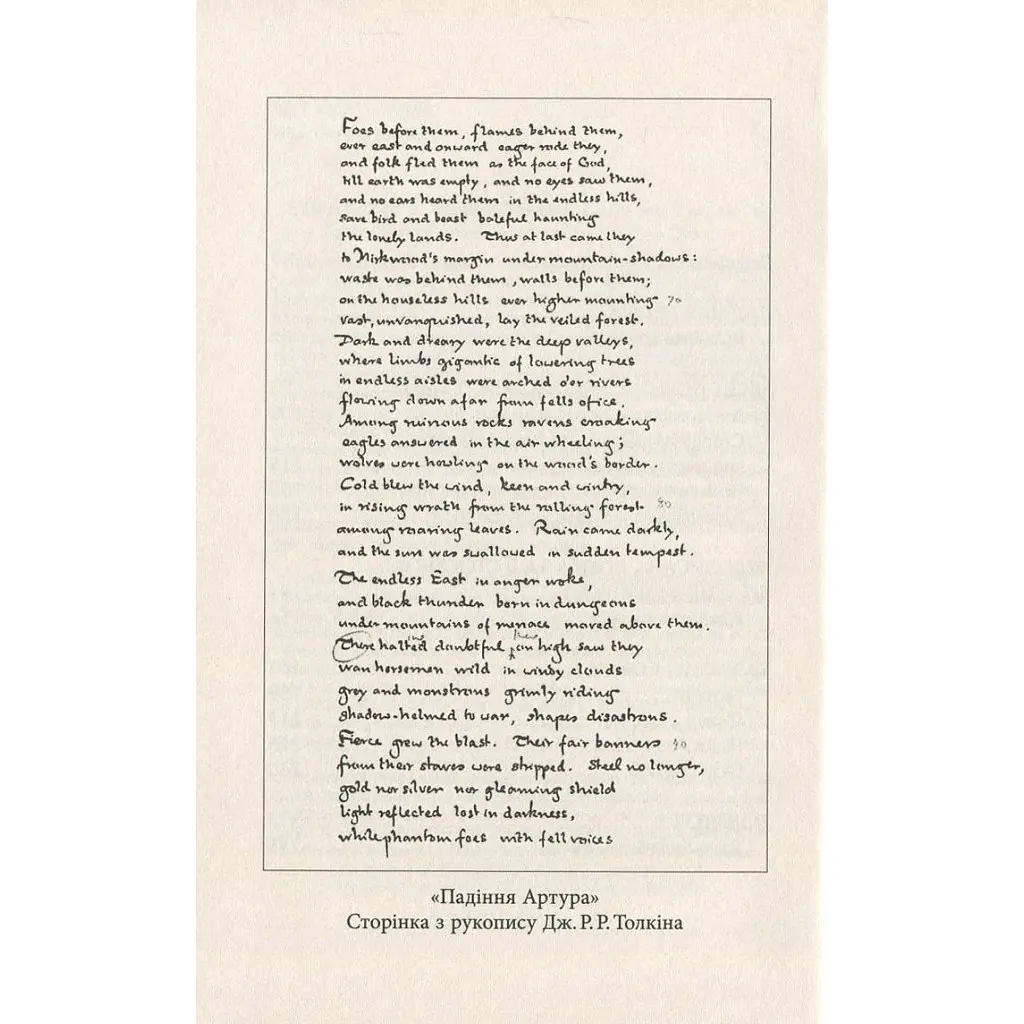 Foes before them, flames behind them,
ever east and onward eager rode they,
and folk fled them as the face of God,
till earth was empty, and no eyes saw them,
and no ears heard them in the endless hills,
save bird and beast baleful haunting
the lonely lands. Thus at last came they
to Mirkwood's margin under mountain-shadows:
waste was behind them, walls before them;
on the houseless hills ever higher mounting 70
vast, unvanquished, lay the veiled forest.
Dark and dreary were the deep valleys,
where limbs gigantic of lowering trees
in endless aisles were arched o'er rivers
flowing down afar from fells of ice.
Among ruinous rocks ravens croaking
eagles answered in the air wheeling;
wolves were howling on the wood's border.
Cold blew the wind, keen and wintry,
in rising wrath from the rolling forest 80
among roaring leaves. Rain came darkly,
and the sun was swallowed in sudden tempest.
The endless East in anger woke,
and black thunder born in dungeons
under mountains of menace moved above them.
There halted doubtful, on high saw they
wan horsemen wild in windy clouds
grey and monstrous grimly riding
shadow-helmed to war, shapes disastrous.
Fierce grew the blast. Their fair banners 90
from their staves were stripped. Steel no longer,
gold nor silver nor gleaming shield
light reflected lost in darkness,
while phantom foes with fell voices
«Падіння Артура»
Сторінка з рукопису Дж. Р. Р. Толкіна